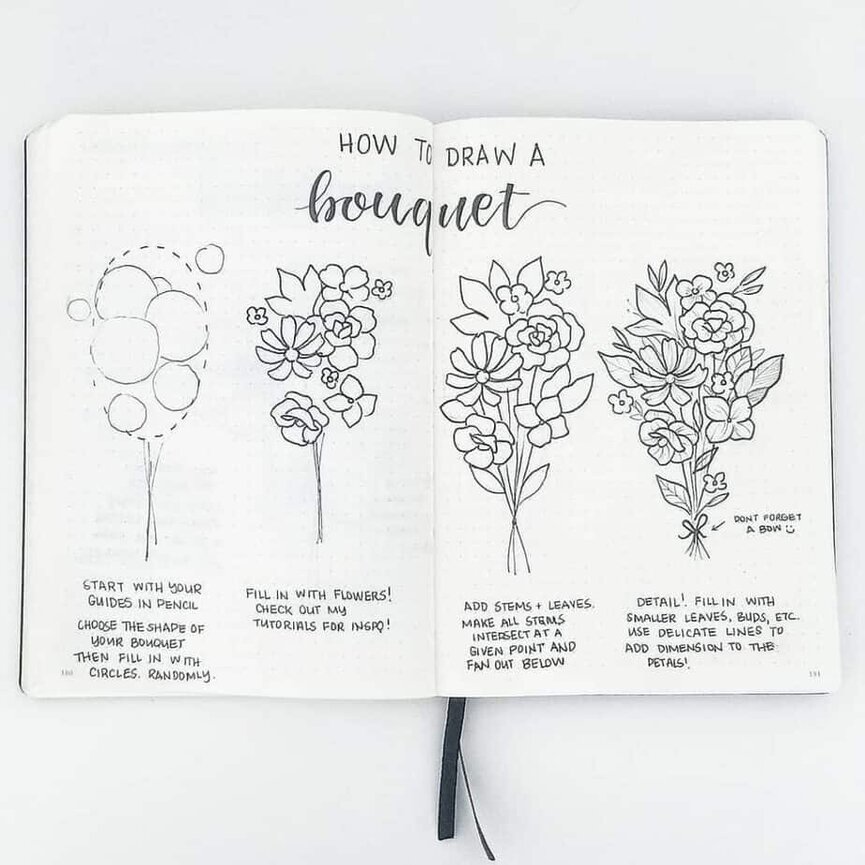 HOW TO DRAW A
bouquet
START WITH YOUR
GUIDES IN PENCIL
CHOOSE THE SHAPE OF
YOUR BOUQUET
THEN FILL IN WITH
CIRCLES. RANDOMLY.
FILL IN WITH FLOWERS!
CHECK OUT MY
TUTORIALS FOR INSPO!
ADD STEMS + LEAVES.
MAKE ALL STEMS
INTERSECT AT A
GIVEN POINT AND
FAN OUT BELOW
DONT FORGET
A BOW
DETAIL! FILL IN WITH
SMALLER LEAVES, BUDS, ETC.
USE DELICATE LINES TO
ADD DIMENSION TO THE
PETALS!
180
181